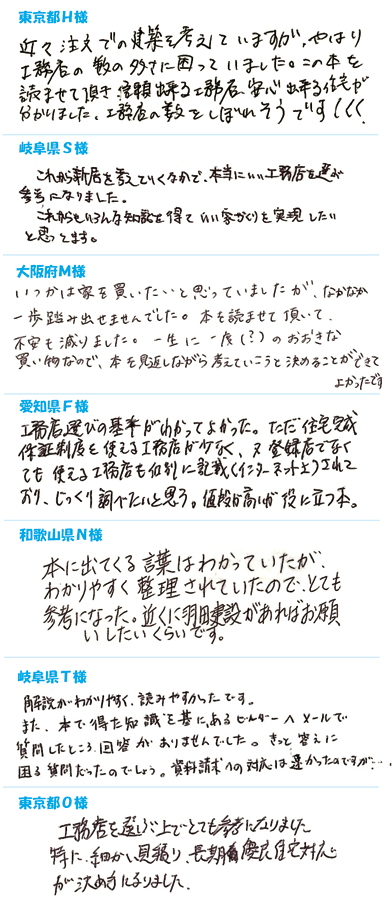 東京都H様
近々注文での建築を考えていますが、やはり
工務店の数の多さに困っていました。この本を
読ませて頂き、信頼出来る工務店、安心出来る住宅が
分かりました。工務店の数をしぼれそうです(((
岐阜県S様
これから新居を考えていくなかで、本当にいい工務店を選ぶ
参考になりました。
これからもいろんな知識を得ていい家づくりを実現したい
と思ってます。
大阪府M様
いつかは家を買いたいと思っていましたが、なかなか
一歩踏み出せませんでした。本を読ませて頂いて、
不安も減りました。一生に一度(?)のおおきな
買い物なので、本を見返しながら考えていこうと決めることができて
よかったです
愛知県F様
工務店選びの基準がわかってよかった。ただ住宅完成
保証制度を使える工務店が少なく、又登録店でなく
ても使える工務店も個別に記載(インターネット上)されて
おり、じっくり調べたいと思う。値段が高いが役に立つ本。
和歌山県N様
本に出てくる言葉はわかっていたが、
わかりやすく整理されていたので、とても
参考になった。近くに羽田建設があればお願
いしたいくらいです。
岐阜県T様
解説がわかりやすく、読みやすかったです。
また、本で得た知識を基に、あるビルダーへメールで
質問したところ、回答がありませんでした。きっと答えに
困る質問だったのでしょう。資料請求への対応は速かったのですが…
東京都O様
工務店を選ぶ上でとても参考になりました
特に、細かい見積り、長期優良住宅対応
が決め手になりました。